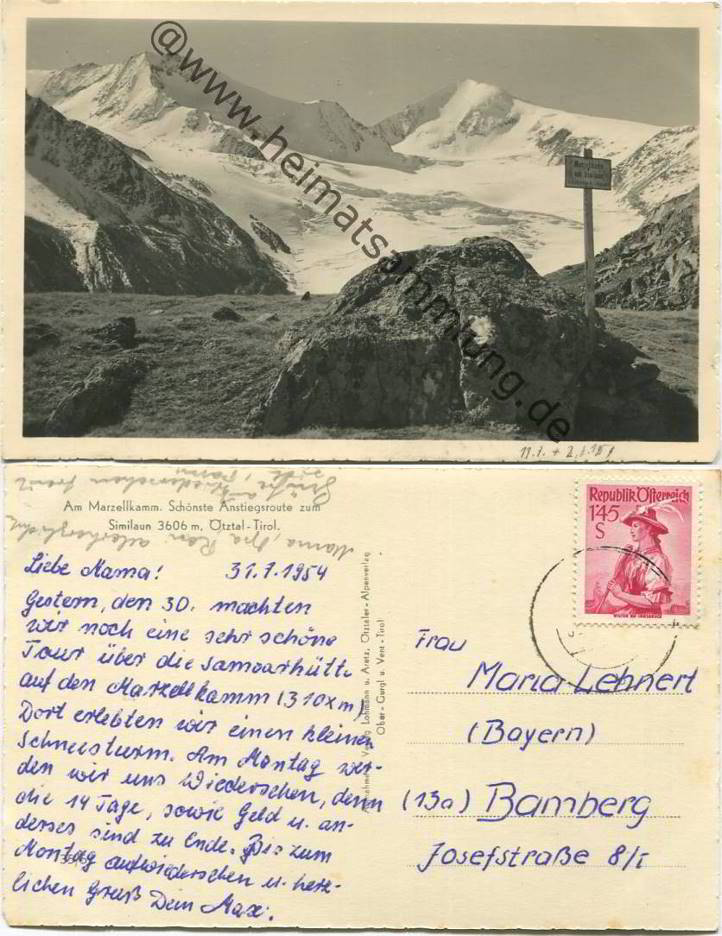 @www.heimatsammlung.de
Am Marzellkamm. Schönste Anstiegsroute zum
Similaun 3606 m, Ötztal-Tirol.
Liebe Mama! 31.7.1954
Gestern, den 30. machten
wir noch eine sehr schöne
Tour über die Samoarhütte
auf den Marzellkamm (310x m)
Dort erlebten wir einen kleinen
Schneesturm. Am Montag wer-
den wir uns Wiedersehen, denn
die 14 Tage, sowie Geld u. an-
deres sind zu Ende. Bis zum
Montag aufwiedersehen u. herz-
lichen Gruß Dein Max.
Verlag Lohmann u. Aretz, Ötztaler-Alpenverlag
Ober-Gurgl u. Vent-Tirol
Republik Österreich
1.45
S
Frau
Maria Lehnert
(Bayern)
(13a) Bamberg
Josefstraße 8/I